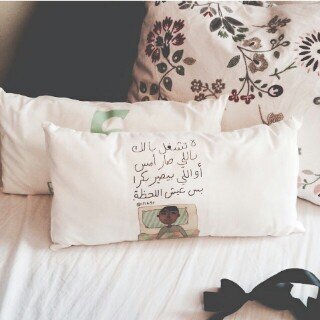 لا تشغل بالك
باللي صار أمس
أو اللي بيصير بكرا
بس عيش اللحظة